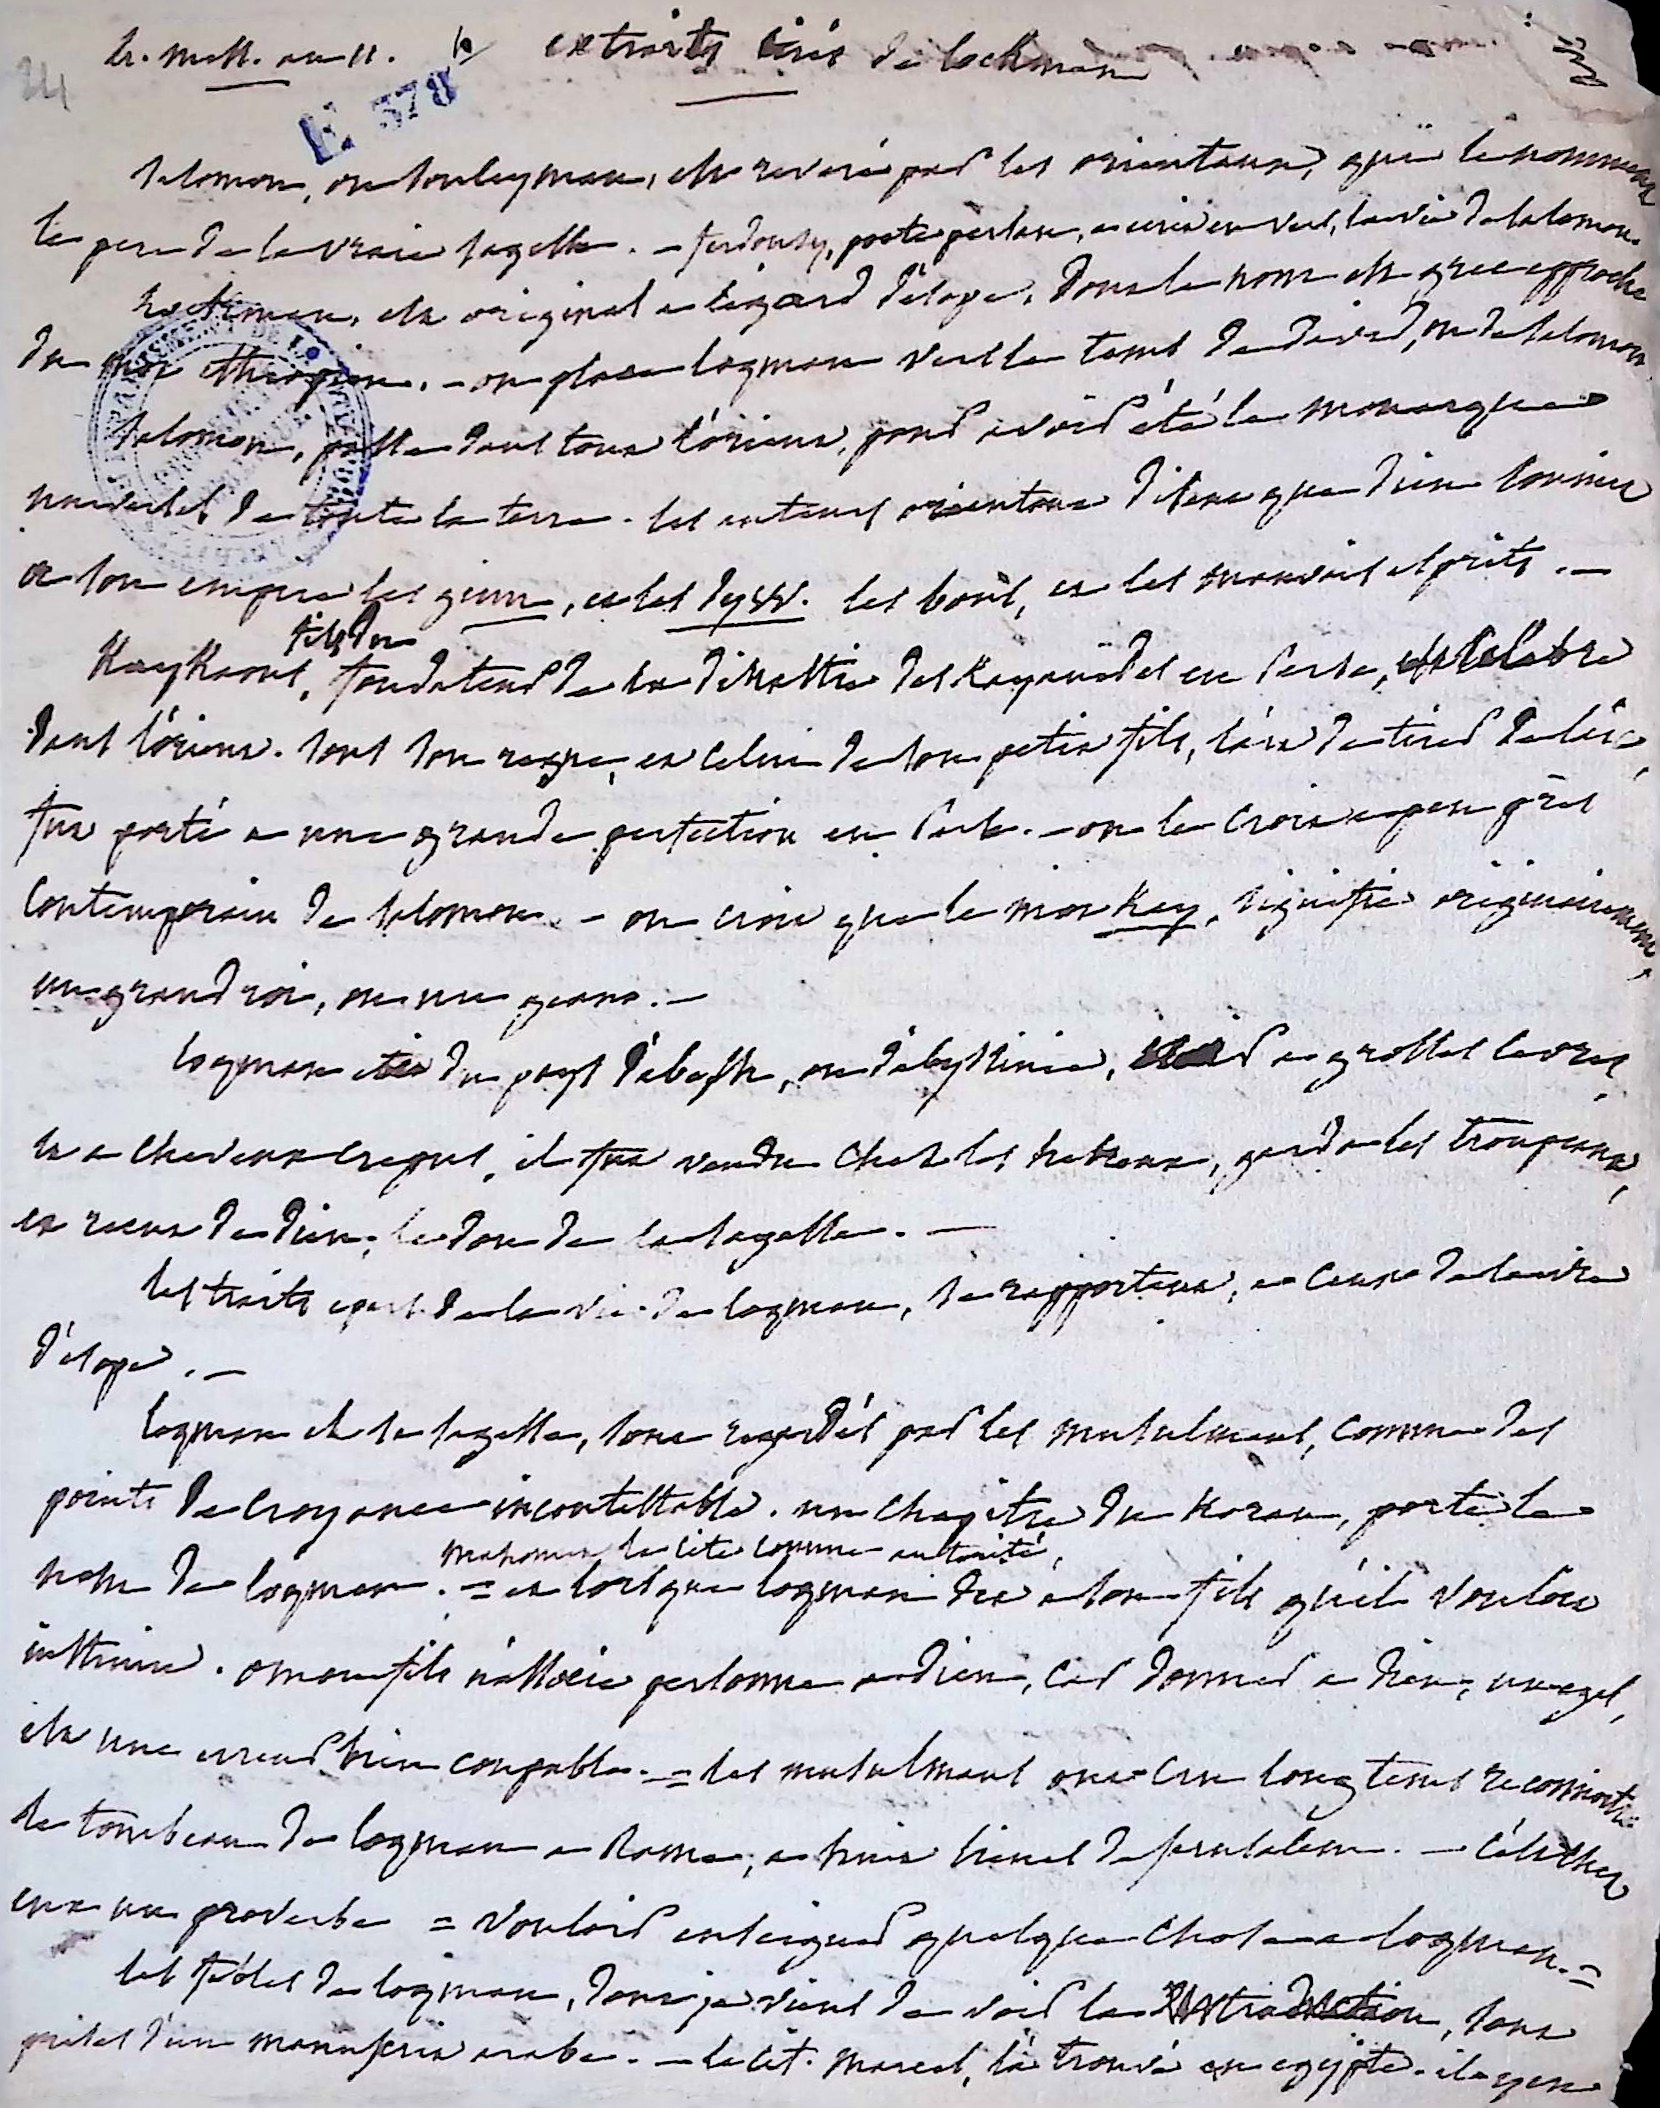 24
E 378
extraits tirés de lockman
salomon, ou souleyman, est reveré par les orientaux, qui le nomment
le pere de la vraie sagesse. – ferdousy, poete persan, a ecrit en vers, la vie de salomon.
lockman, est original a l'égard d'esope, dont le nom en grec approche
du mot ethiopien. – on place loqman vers le tems de david, ou de salomon.
salomon, passe dans tout l'orient, pour avoir été le monarque
universel de toute la terre. les auteurs orientaux disent que dieu soumit
a son empire les ginn, et les dyw. les bons, et les mauvais esprits. –
fils du
Kaykaous, fondateur de la dinastie des Kayanides en Perse, est celebre
dans l'orient. sous son regne, et celui de son petit fils, l'art de tirer de l'arc,
fut porté a une grande perfection en Perse. – on le croit a peu près
contemporain de salomon. – on croit que le mot Kay, signifie originairement,
un grand roi, ou un geant. –
loqman etait du pays d'abesh, ou d'abyssinie, noir a grosses levres,
et a cheveux crepus, il fut vendu chez les hebreux, garda les troupeaux,
et recut de dieu, le don de la sagesse. –
les traits epars de la vie de loqman, se rapportent, a ceux de la vie
d'esope. –
loqman et sa sagesse, sont regardés par les musulmans, comme des
points de croyance incontestable. un chapitre du Koran, porte le
mahomet le cite comme autorité,
nom de loqman. = et lorsque loqman dit a son fils qu'il vouloit
instruire. o mon fils n'associe personne a dieu, car donner a dieu, un egal,
est une erreur bien coupable. = les musulmans ont cru longtems reconnoitre
le tombeau de loqman a Rama, a huit lieues de jerusalem. – c'est chez
eux un proverbe = vouloir enseigner quelque chose a loqman. =
les fables de loqman, dont je viens de voir la traduction, sont
prises d'un manuscrit arabe. – le cit. marcel, l'a trouvé en egypte. il y en